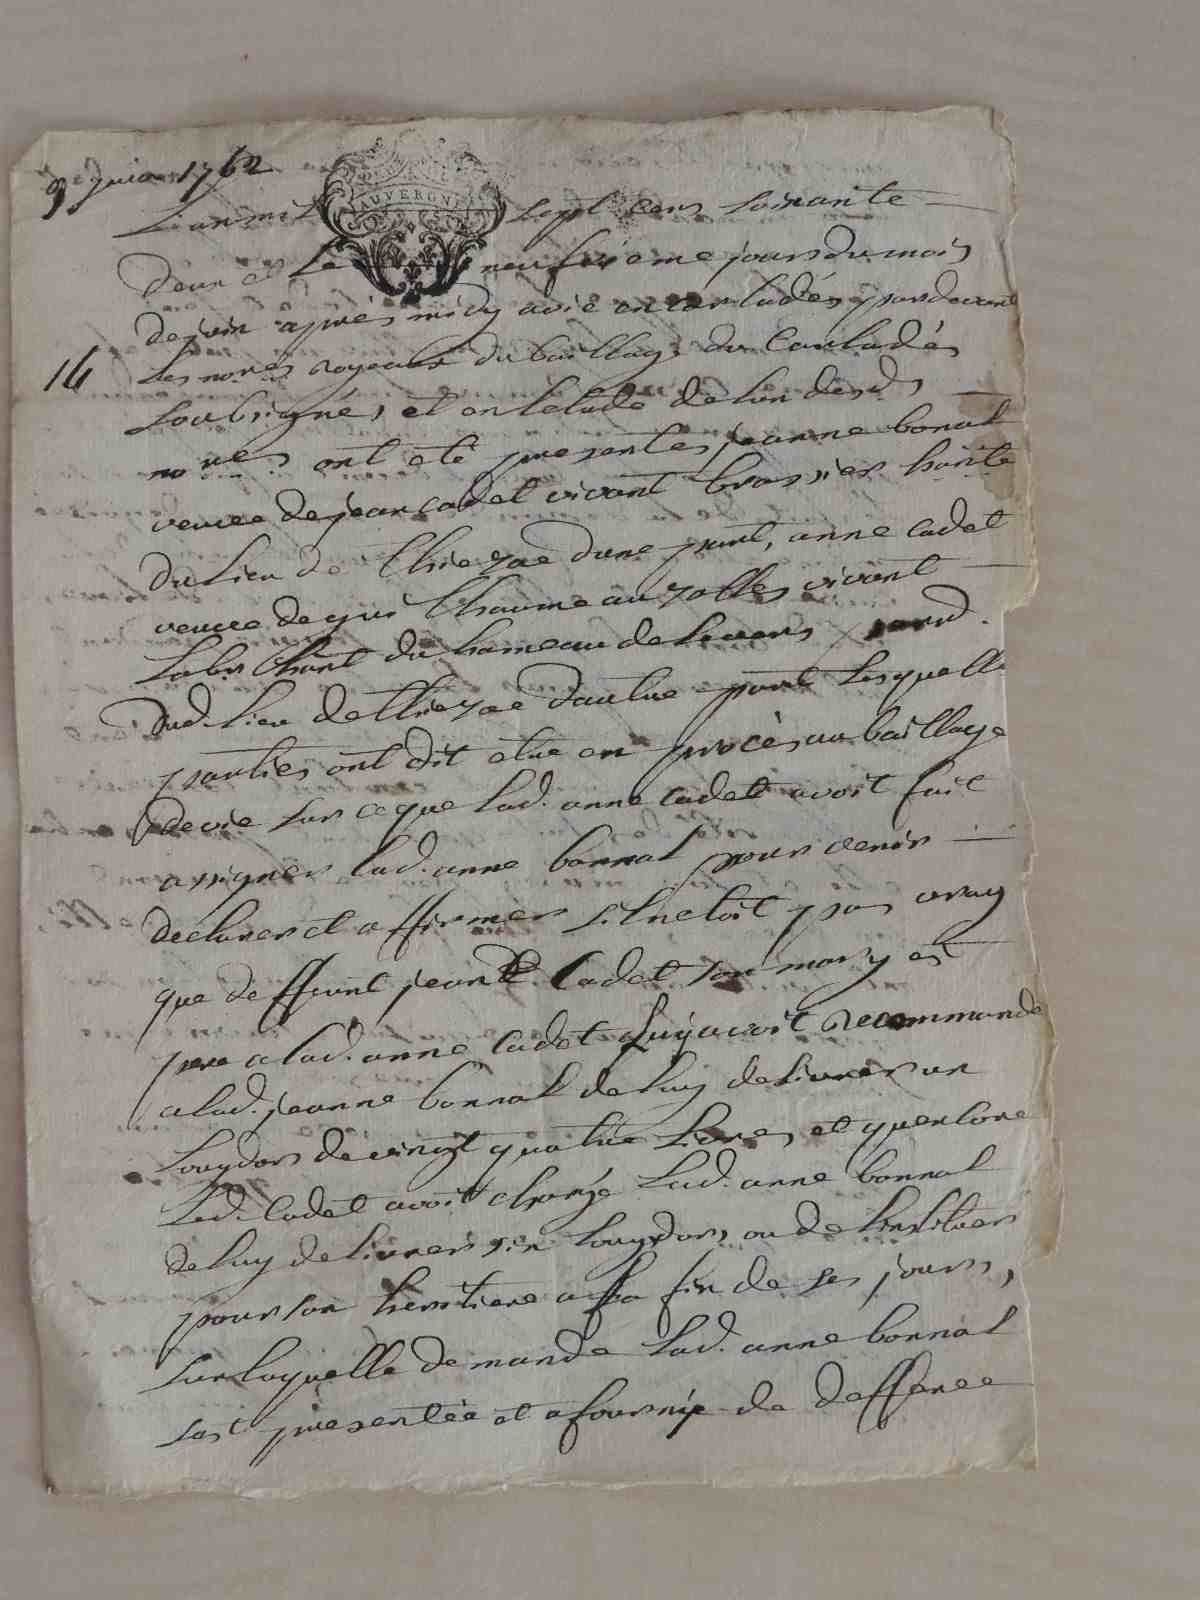 9e juin 1762
AUVERGNE
L'an mil sept cens soixante
deux et le neufvieme jour du mois
de juin après midy a vic en carladés pardevant
16
les nores royeaux du baillage du Carladés
soubsignés et en letude de lun desds
nores ont eté presentes jeanne bonal
veuve de jean cadet vivant brassier hante
du lieu de Thiezac dune part, anne cadet
veuve de gui Chaumeau zolles vivant
labr. hant du hameau de
dud. lieu de thiezac dautre part lesquelles
parties ont dit etre en procès au baillage
de vic sur ce que lad. anne cadet avoit fait
assigner lad. anne bonnal pour venir
declarer et affirmer sil netoit pas vray
que deffunt jean Cadet son mary et
pere a lad. anne cadet luy avoit recommandé
a lad. jeanne bonnal de luy delivrer un
louydors de vingt quatre livres et quencore
led. Cadet avoit chargé lad. anne bonnal
de luy delivrer six louydors ou de linstituer
pour son heritiere a sa fin de ses jours,
sur laquelle demande lad. anne bonnal
sest presentée et a fournie de deffence